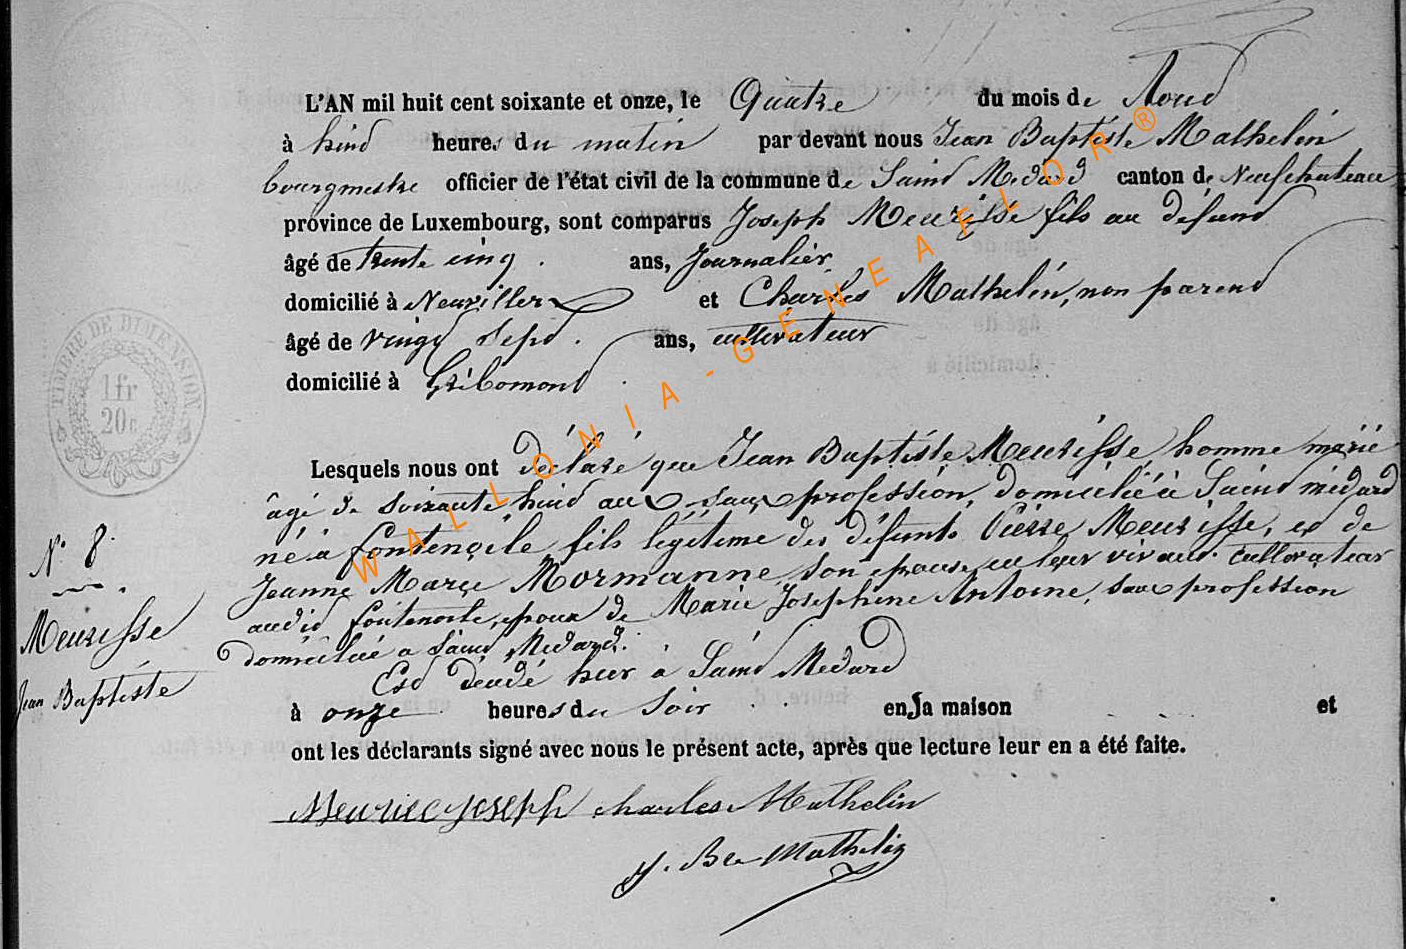 L'AN mil huit cent soixante et onze, le Quatre du mois de Aoud
à huid heures du matin par devant nous Jean Baptiste Mathelin
bourgmestre officier de l'état civil de la commune de Saind Medard canton de Neufchateau
province de Luxembourg, sont comparus Joseph Meurisse fils au défund
âgé de trente cinq ans, Journalier
domicilié à Neuvillers et Charles Mathelin, non parend
âgé de vingd sepd ans, cultivateur
domicilié à Gribomond
TIMBRE DE DIMENSION
1fr
20c
Lesquels nous ont déclaré que Jean Baptiste Meurisse homme marié
âgé de soixante huid ans sans profession, domicilié à Saind médard
né à fontenoile fils légitime des défunts Pierre Meurisse, ed de
Jeanne Marie Mormanne, son epouse en leur vivand cultivateur
audid fontenoile, epoux de Marie Josephine Antoine, sans profession
domiciliée a Saind Medard.
Esd décédé hier à Saind Medard
à onze heures du Soir en sa maison et
ont les déclarants signé avec nous le présent acte, après que lecture leur en a été faite.
N° 8
Meurisse
Jean Baptiste
Meurice joseph charles Mathelin
J. Bte Mathelin
WALLONIA-GENEAFLOR®